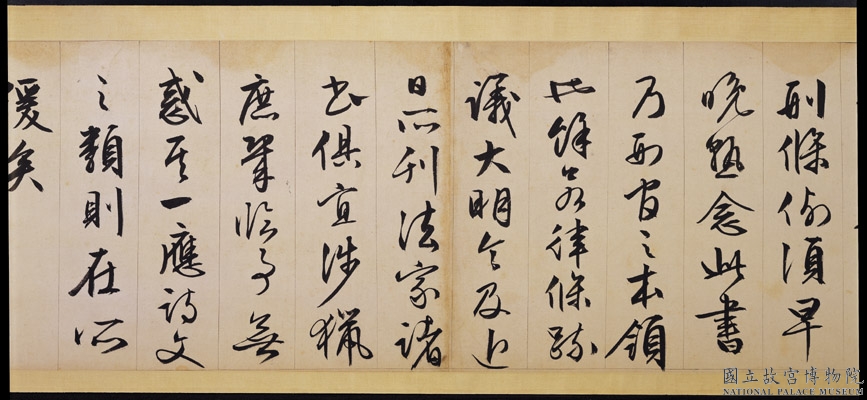 刑條例須早
晚熟念此書
乃刑官之本領
其餘若律條疏
議大明令及近
日所刊法家諸
書俱宜涉獵
庶幾臨事無
惑其一應詩文
之類則在所
緩矣
國立故宮博物院
NATIONAL PALACE MUSEUM